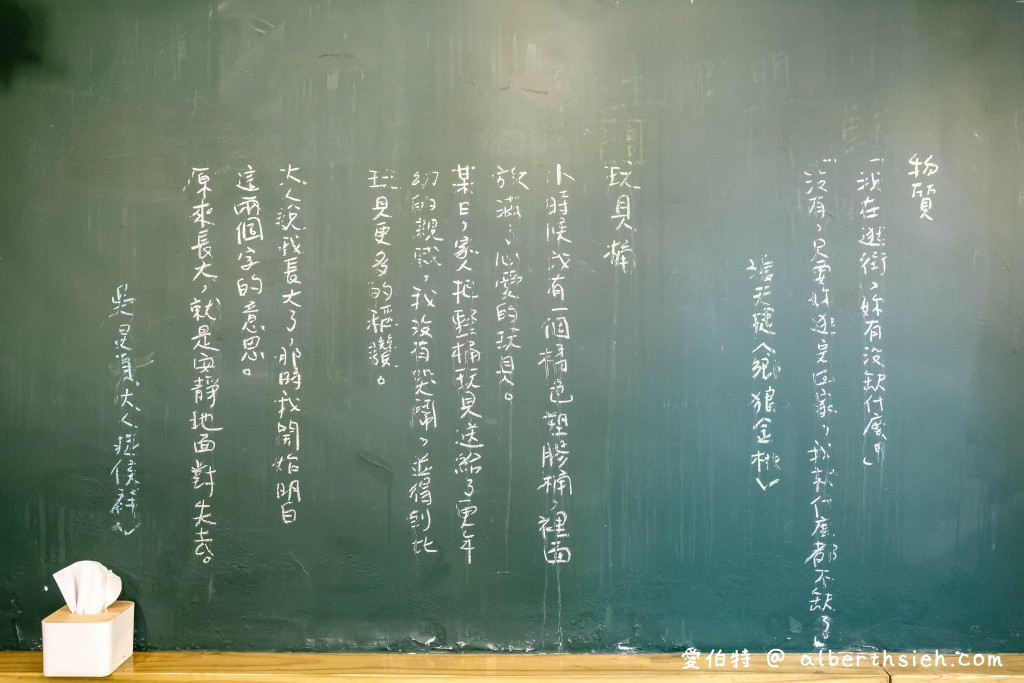 物質
「我在逛街，妳有沒缺什麼」
「沒有，只要妳逛完回家，我就什麼都不缺了」
張天捷《鄉狼金桃》
玩具桶
小時候我有一個橘色塑膠桶，裡面
放滿了心愛的玩具。
某日，家人把整桶玩具送給了更年
幼的親戚，我沒有哭鬧，並得到比
玩具更多的稱讚。
大人說我長大了，那時我開始明白
這兩個字的意思。
原來長大，就是安靜地面對失去。
大人症候群》
愛伯特 @ alberthsieh.com